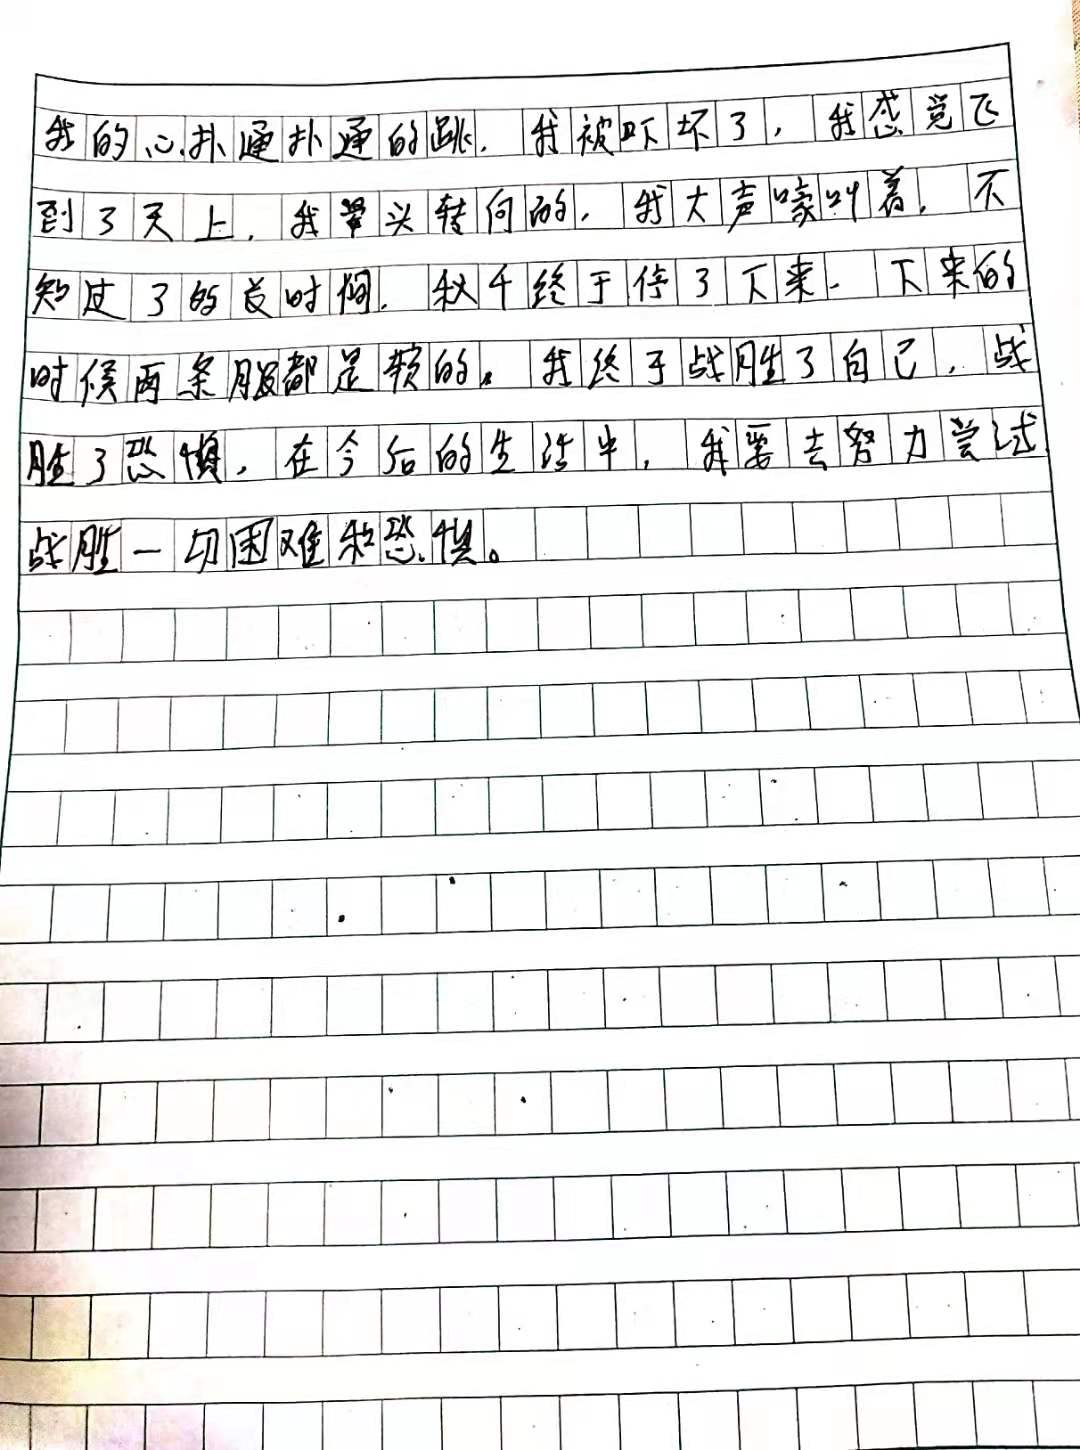 我的心扑通扑通的跳，我被吓坏了，我感觉飞
到了天上，我晕头转向的，我大声嚎叫着，不
知过了的长时间，秋千终于停了下来，下来的
时候两条腿都是软的。我终于战胜了自己，战
胜了恐惧，在今后的生活中，我要去努力尝试
战胜一切困难和恐惧。